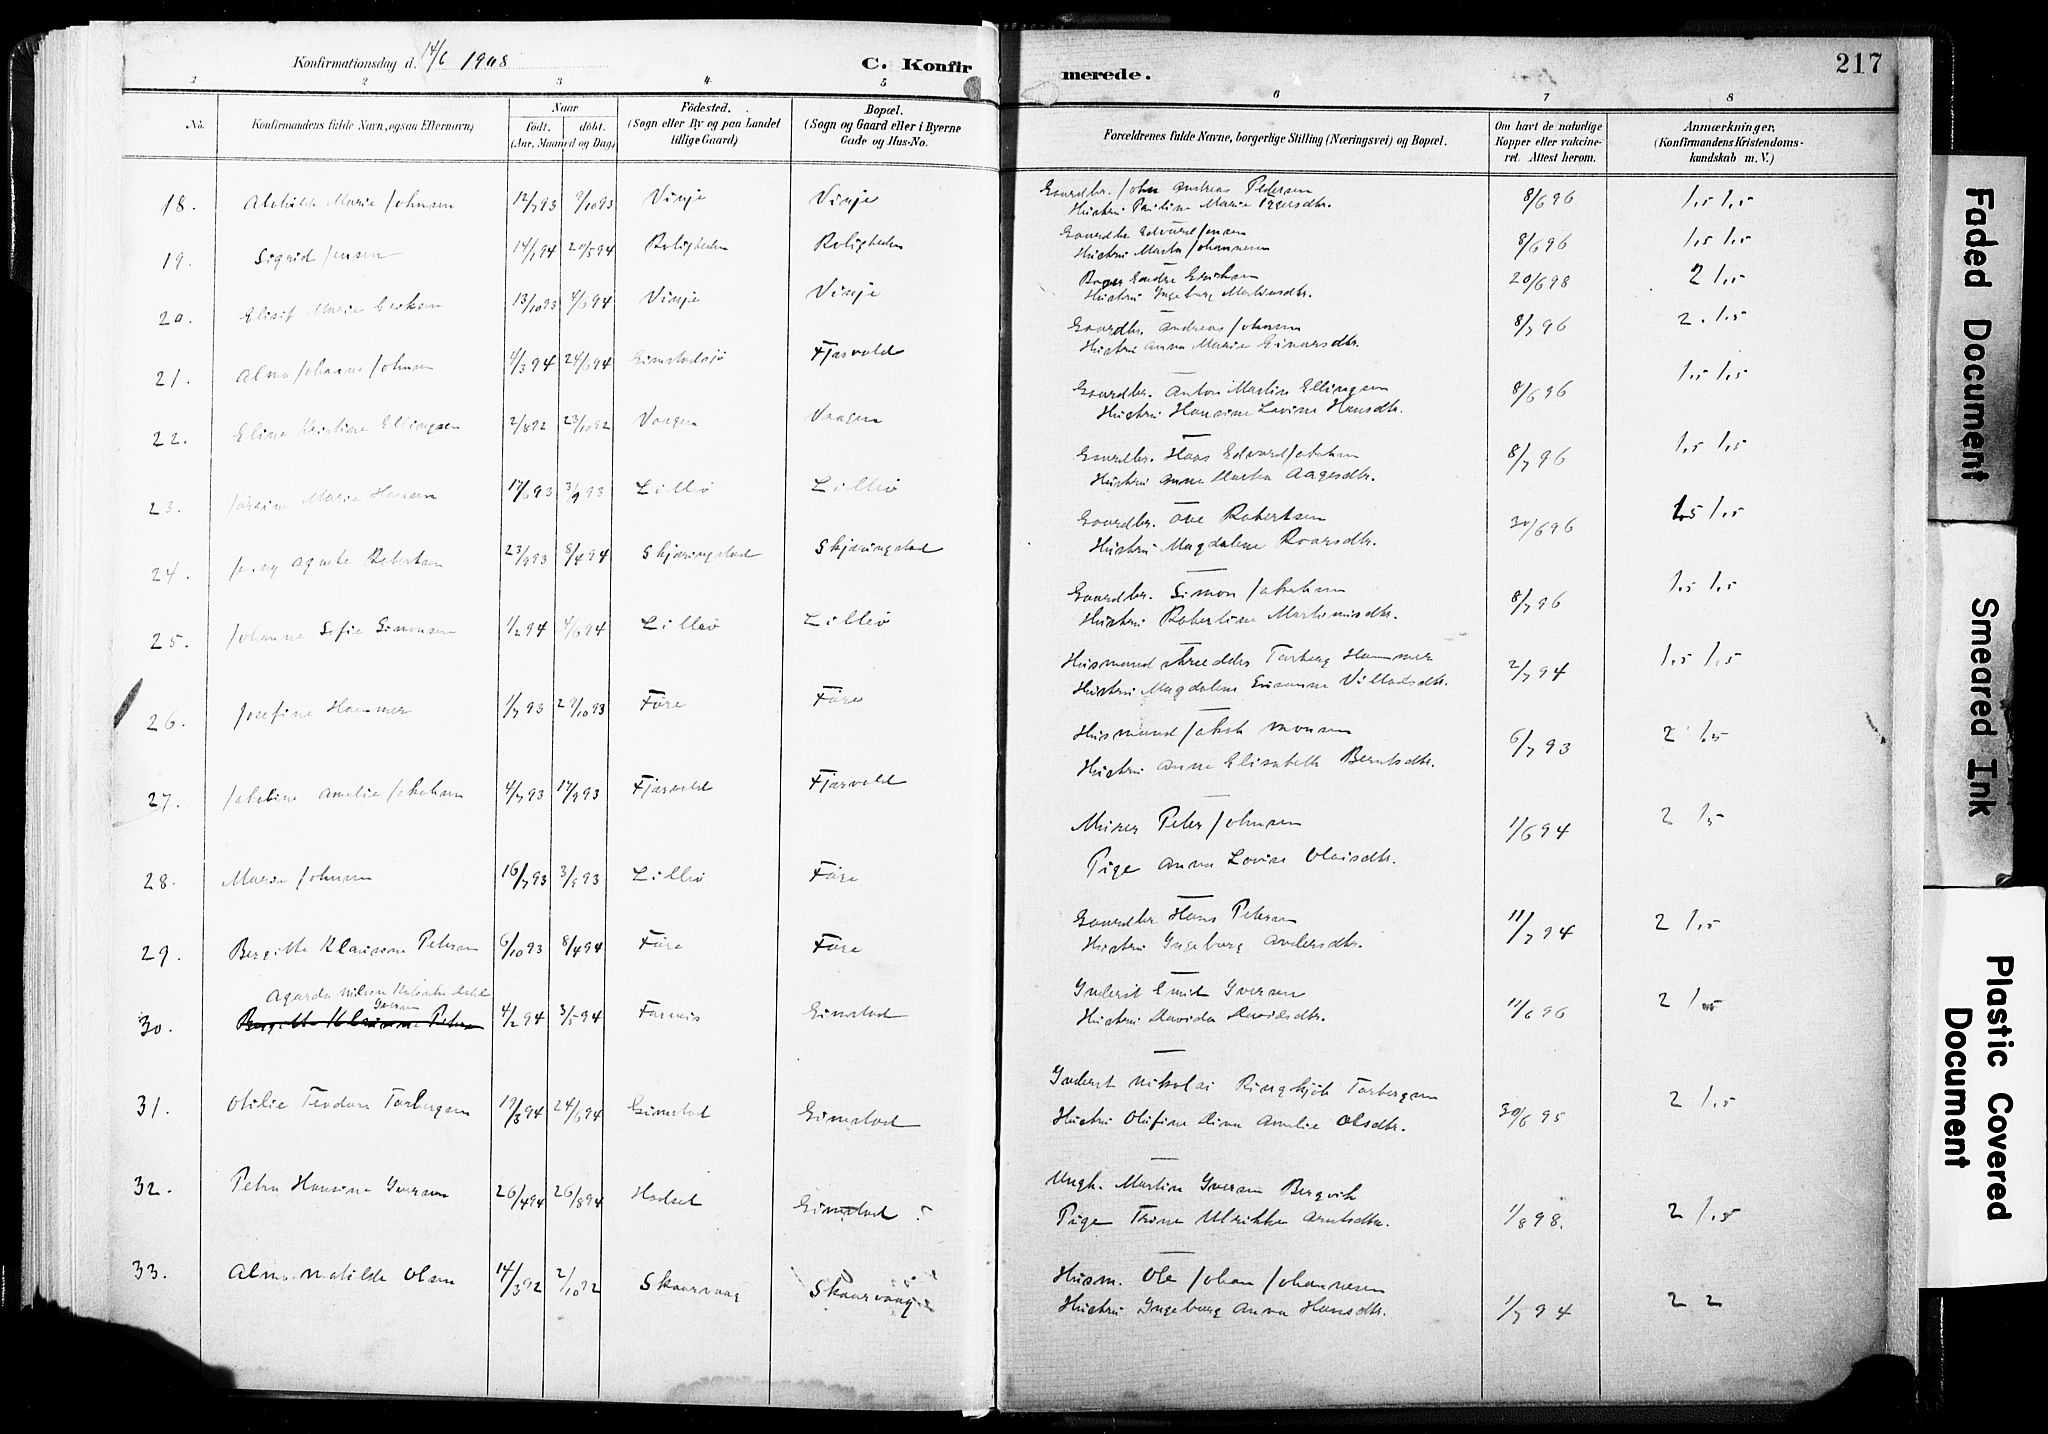 Konfirmationsdag d. 14/6 1908
C. Konfirmerede.
217
1 2 3 4 5 6 7 8
No. Konfirmandens fulde Navn, ogsaa Efternavn) Naar födt. döbt. (Aar, Maaned og Dag) Födested. (Sogn eller By og paa Landet tillige Gaard) Bopæl. (Sogn og Gaard eller i Byerne Gade og Hus-No. Forældrenes fulde Navne, borgerlige Stilling (Næringsvei) og Bopæl. Om havt de naturlige Kopper eller vakcineret. Attest herom. Anmærkninger, (Konfirmandens Kristendomskundskab m. V.)
18. Marie Johnsen 12/7 93 9/10 93 Vinje Vinje Gaardbr. John Andreas Pedersen 8/6 96 1,5 1,5
Hustru Pauline Marie
19. Sigrid Jensen 14/1 94 20/5 94 Roligheden Roligheden Gaardbr Edvard Jensen 8/6 96 1,5 1,5
Hustru Marta Johannesen
20. Elisif Marie Eriksen 13/10 93 4/6 94 Vinje Vinje Eriksen 20/6 98 2 1,5
Hustru Ingeborg Martinsdtr.
21. Alma Johanne Johnsen 4/3 94 24/6 94 Gimstadsjö Fjærvold Gaardbr. Andreas Johnsen 8/7 96 2. 1,5
Hustru Anna Marie Einarsdtr.
22. Eline Kristine Ellingsen 2/8 92 23/10 92 Vaagen Vaagen Gaardbr. Anton Martin Ellingsen 8/6 96 1,5 1,5
Hustru Hansine Lovine Hansdtr.
23. Jørgine Marie Hansen 17/6 93 3/9 93 Lilleö Lilleö Gaardbr. Hans Edvard Jakobsen 8/7 96 1,5 1,5
Hustru Anne Marta Aagesdtr.
24. Jenny Agnete Robertsen 23/9 93 8/4 94 Skjæringstad Skjæringstad Gaardbr. Ove Robertsen 30/6 96 1,5 1,5
Hustru Magdalene Roarsdtr.
25. Johanne Sofie Simonsen 1/2 94 4/6 94 Lilleö Lilleö Gaardbr. Simon Jakobsen 8/7 96 1,5 1,5
Hustru Robertine Martinusdtr.
26. Josefine Hammer 1/7 93 29/10 93 Före Före Husmand Torberg Hammer 2/7 94 1,5 1,5
Hustru Magdalene Susanna Villadsdtr.
27. Jakobine Amelie Jakobsen 4/7 93 17/9 93 Fjærvold Fjærvold Husmand Jakob Monsen 6/7 93 2 1,5
Hustru Anne Elisabeth Berntsdtr.
28. Marie Johnsen 16/7 93 3/9 93 Lilleö Före Murer Peter Johnsen 1/6 94 2 1,5
Pige Anna Lovise Olaisdtr.
29. Bergitte Klausine Petersen 6/10 93 8/4 94 Före Före Gaardbr Hans Petersen 11/7 94 2 1,5
Hustru Ingeborg Andersdtr.
Agarda Nilsen
Iversen
30. Bergitte Klausine Petersen 4/2 94 3/5 94 Farnes Gimstad Inderst Emil Iversen 11/6 96 2 1,5
Hustru Davida Davidsdtr.
31. Otilie Teodora Torbergsen 19/3 94 24/6 94 Gimstad Gimstad Inderst Nikolai Ringkjöb Torbergsen 30/6 95 2 1,5
Hustru Olufine Dina Amelie Olsdtr.
32. Petra Hansine Iversen 26/4 94 26/8 94 Hadsel Gimstad ? Ungk. Martin Iversen Bergvik 1/8 98. 2 1,5
Pige Trine Ulrikke Arntsdtr.
33. Alma Matilde Olsen 14/3 92 2/10 92 Skaarvaag Skaarvaag Husm. Ole Johan Johannesen 1/7 94 2 2
Hustru Ingeborg Anna Hansdtr.
Faded Document
Smeared Ink
Plastic Covered Document